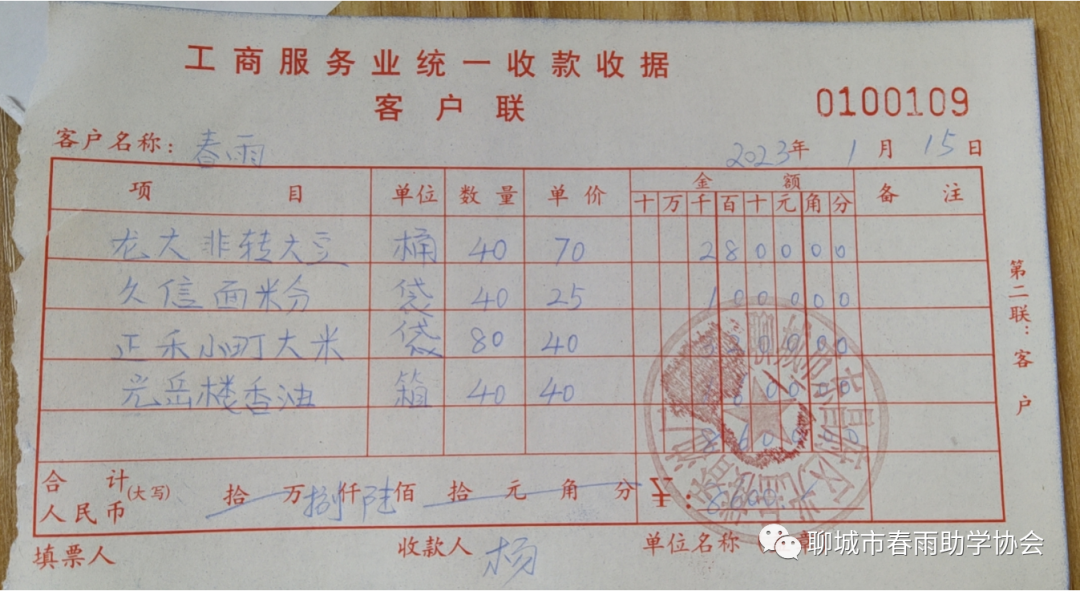 工商服务业统一收款收据
客户联
0100109
客户名称：春雨 2023年1月15日
项目 单位 数量 单价 金额 备注
十万千百十元角分
龙大非转大豆 桶 40 70 280000
久信面粉 袋 40 25 100000
正禾小町大米 袋 80 40 320000
光岳楼香油 箱 40 40
合计 人民币 (大写) 拾万捌仟陆佰拾元角分 ¥：8600
填票人 收款人 杨 单位名称
第二联：客户
聊城市春雨助学协会